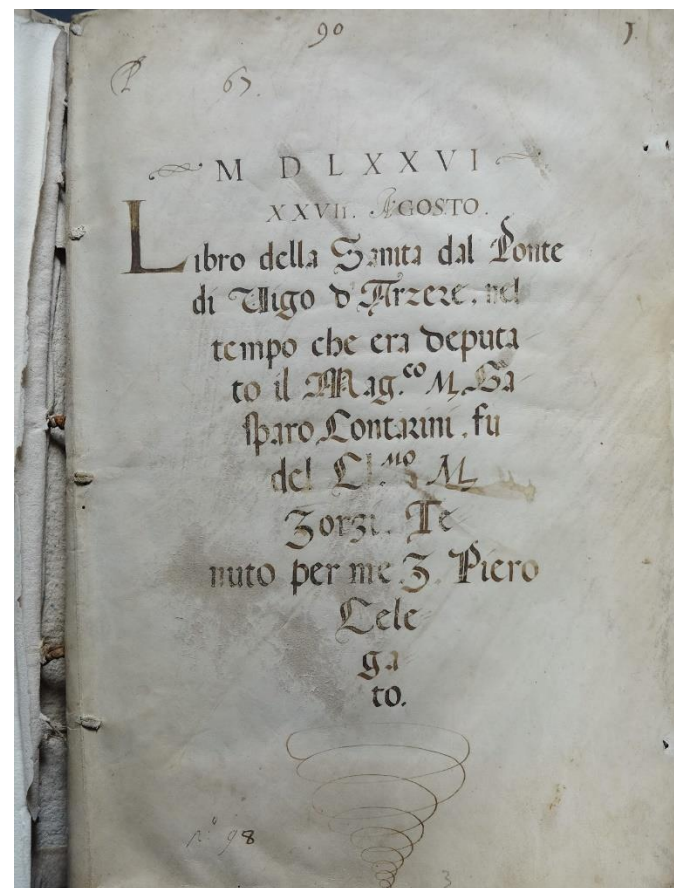 90
67.
M D L X X V I
XXVII. AGOSTO.
Libro della Sanita dal Ponte
di Vigo d'Arzere, nel
tempo che era deputa
to il Mag.co M. Ga
sparo Contarini. fu
del Cl.mo M.
Zorzi. Te
nuto per me Z. Piero
Cele
ga
to.
No 98
3